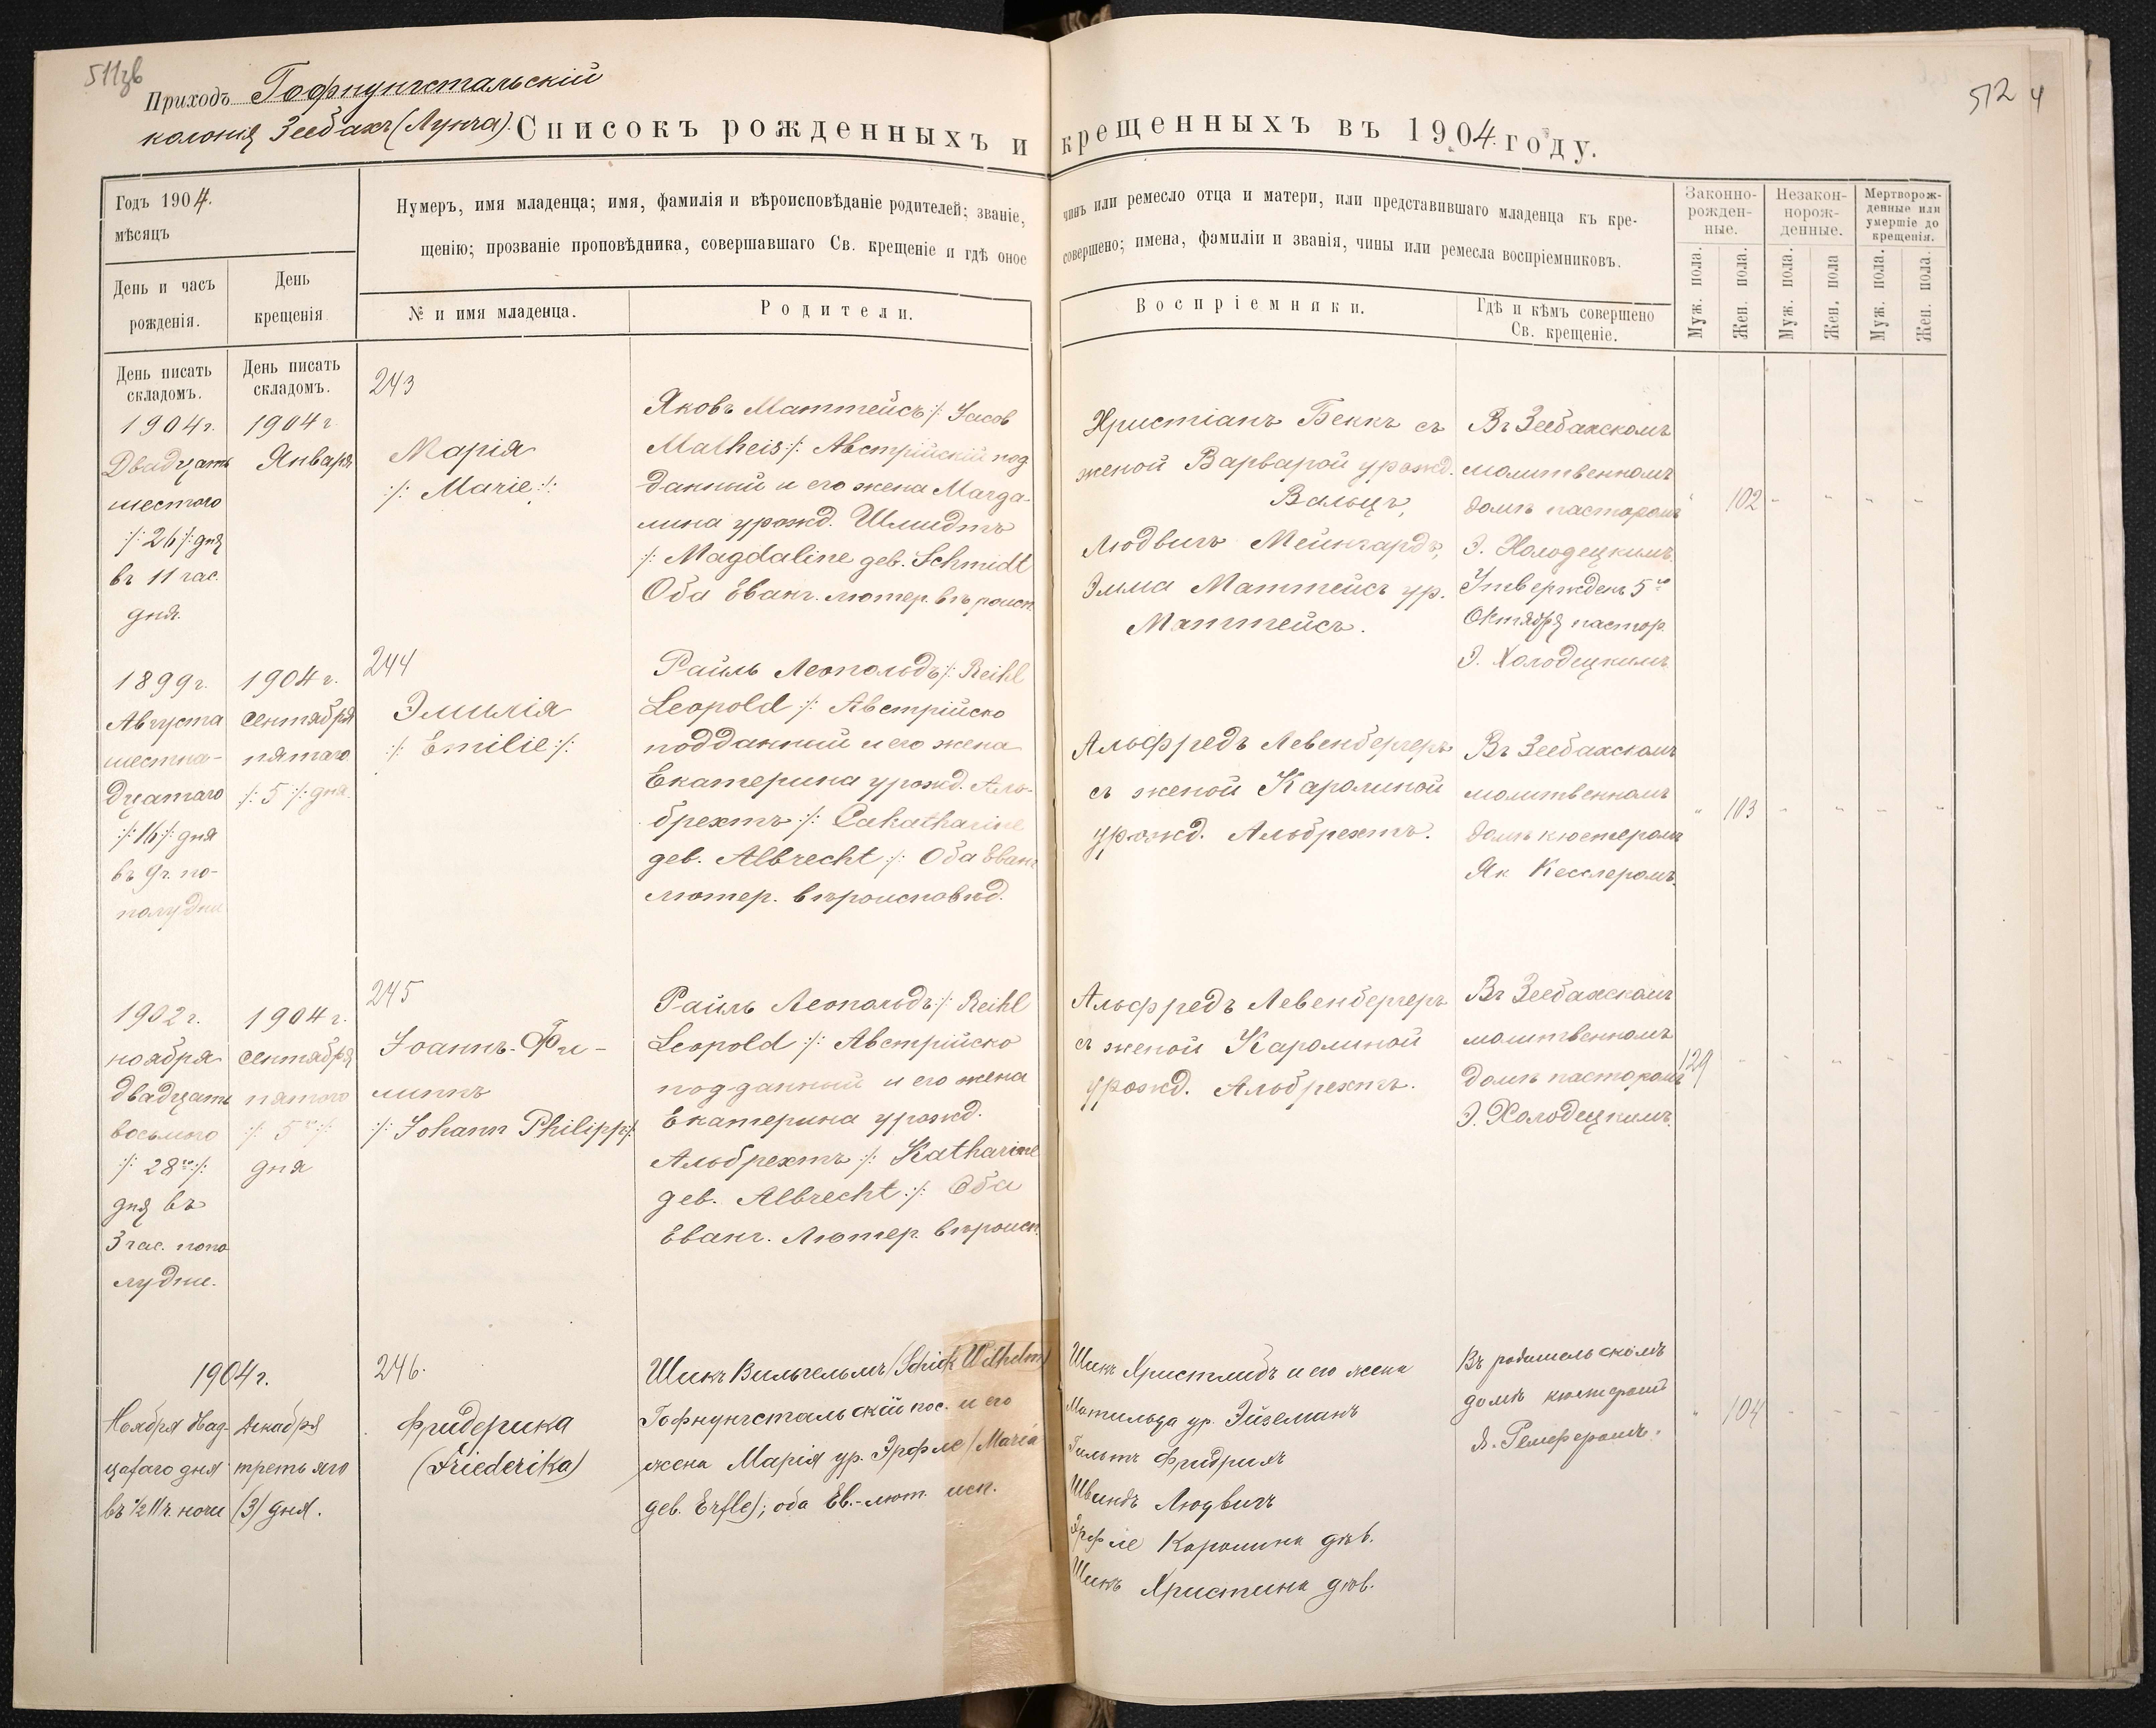 511зв
Приходъ Гофнунгстальскій
колонія Зеебахъ (Лунга).
512 4
Списокъ рожденныхъ и крещенныхъ въ 1904. году.
Годъ 1904.
мѣсяцъ
День и часъ
рожденія.
День
крещенія
Нумеръ, имя младенца; имя, фамилія и вѣроисповѣданіе родителей; званіе,
щенію; прозваніе проповѣдника, совершавшаго Св. крещеніе и гдѣ оное
№ и имя младенца.
Родители.
чинъ или ремесло отца и матери, или представившаго младенца къ кре-
совершено; имена, фамиліи и званія, чины или ремесла воспріемниковъ.
Воспріемники.
Гдѣ и кѣмъ совершено
Св. крещеніе.
Законно-
рожден-
ные.
Незакон-
норож-
денные.
Мертворож-
денные или
умершіе до
крещенія.
Муж. пола.
Жен. пола.
Муж. пола.
Жен. пола
Муж. пола.
Жен. пола.
День писать
складомъ.
День писать
складомъ.
1904г.
Двадцать
шестого
/:26:/ дня
въ 11 час.
дня.
1904г
Января
243
Марія
/: Marie :/:
Яковъ Маттейсъ /: Jacob
Matheis :/: Австрійскій под
данный и его жена Магда-
лина урожд. Шмидтъ
/: Magdaline geb. Schmidt
Оба Еванг. лютер. вѣроисп.
Христіанъ Беккъ съ
женой Варварой урожд.
Вальцъ,
Людвигъ Мейнгардъ,
Эмма Маттейсъ ур.
Маттейсъ.
Въ Зеебахскомъ
молитвенномъ
домѣ пасторомъ
Э. Холодецкимъ.
Утвержденъ 5го
Октября пастор.
Э. Холодецкимъ
" 102 - - - -
1899г.
Августа
шестна-
дцатаго
/:16:/ дня
въ 9ч. по-
полудни
1904г.
сентября
пятаго
/: 5 :/: дня.
244
Эмилія
/: Emilie :/:
Райль Леопольдъ /: Reihl
Leopold :/: Австрійско
подданный и его жена
Екатерина урожд. Аль-
брехтъ /: Cakatharine
geb. Albrecht :/: Оба Еванг
лютер. вѣроисповѣд.
Альфредъ Левенбергеръ
съ женой Каролиной
урожд. Альбрехтъ.
Въ Зеебахскомъ
молитвенномъ
домѣ кюстеромъ
Як Кесслеромъ.
" 103 - - - -
1902г.
ноября
двадцать
восьмого
/: 28го :/:
дня въ
3 час. попо
лудни.
1904г.
сентября
пятого
/: 5го :/:
дня
245
Іоаннъ-Фи-
липпъ
/: Johann Philipp :/:
Райль Леопольдъ /: Reihl
Leopold :/: Австрійско
подданный и его жена
Екатерина урожд.
Альбрехтъ /: Katharine
geb. Albrecht :/: Оба
Еванг. Лютер. вѣроисп.
Альфредъ Левенбергеръ
съ женой Каролиной
урожд. Альбрехтъ.
Въ Зеебахскомъ
молитвенномъ
домѣ пасторомъ
Э. Холодецкимъ.
129 - - - - -
1904г.
Ноября двад-
цатаго дня
въ ½ 11 ч. ночи
Декабря
третьяго
(3) дня.
246.
Фридерика
(Friederika)
Шикъ Вильгельмъ (Schick Wilhelm)
Гофнунгстальскій пос. и его
жена Марія ур. Эрфле (Maria
geb. Erfle); оба Ев.-лют. исп.
Шикъ Христлибъ и его жена
Матильда ур. Эйземанъ
Гильтъ Фридрихъ
Швиндъ Людвигъ
Эрфле Каролина дѣв.
Шикъ Христина дѣв.
Въ родительскомъ
домѣ кюстеромъ
Я. Ремпферомъ.
" 104 - - - -